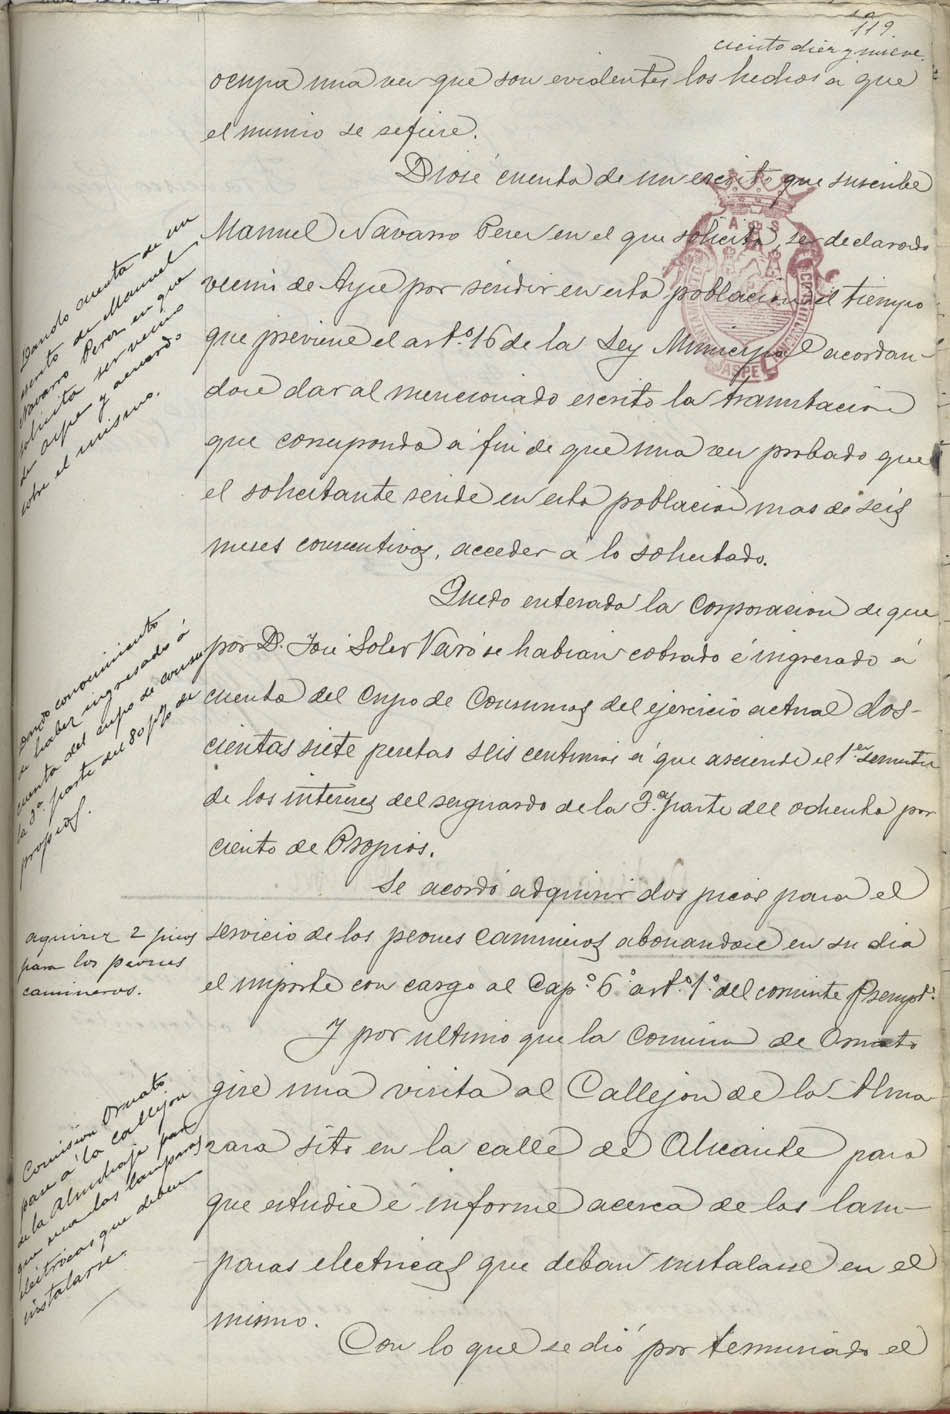 119.
ciento diez y nueve.
ocupa una vez que son evidentes los hechos á que
el mismo se refiere.
Diose cuenta de un escrito que suscribe
Manuel Navarro Perez en el que solicita, ser declarado
vecino de Aspe por residir en esta población el tiempo
que previene el artº. 16 de la Ley Municipal acordan-
dose dar al mencionado escrito la tramitacion
que corresponda á fin de que una vez probado que
el solicitante reside en esta poblacion mas de seis
meses consecutivos, acceder á lo solicitado.
Quedo enterada la Corporacion de que
por D. José Soler Veró se habian cobrado é ingresado á
cuenta del Cupo de Consumos del ejercicio actual dos-
cientas siete pesetas seis centimos á que asciende el 1.er semestre
de los intereses del resguardo de la 3.ª parte del ochenta por
ciento de Propios.
Se acordó adquirir dos picos para el
servicio de los peones camineros abonandose en su dia
el importe con cargo al Capº. 6º artº. 1º. del corriente Presuptº.
Y por ultimo que la Comision de Ornato
gire una visita al Callejon de la Alma-
zara sito en la calle de Alicante para
que estudie é informe acerca de las lam-
paras electricas que deban instalarse en el
mismo.
Con lo que se dió por terminado el
Dando cuenta de un
escrito de Manuel
Navarro Perez en que
solicita ser vecino
de aspe y acuerdo
sobre el mismo.
Dando conocimiento
de haber ingresado á
cuenta del cupo de consumos
la 3ª. parte del 80 p% de
propios.
aquirir 2 picos
para los peones
camineros.
Comisión Ornato
pase á la Callejon
de la
que vea las lamparas
eléctricas que deben
instalarse.
ASPE